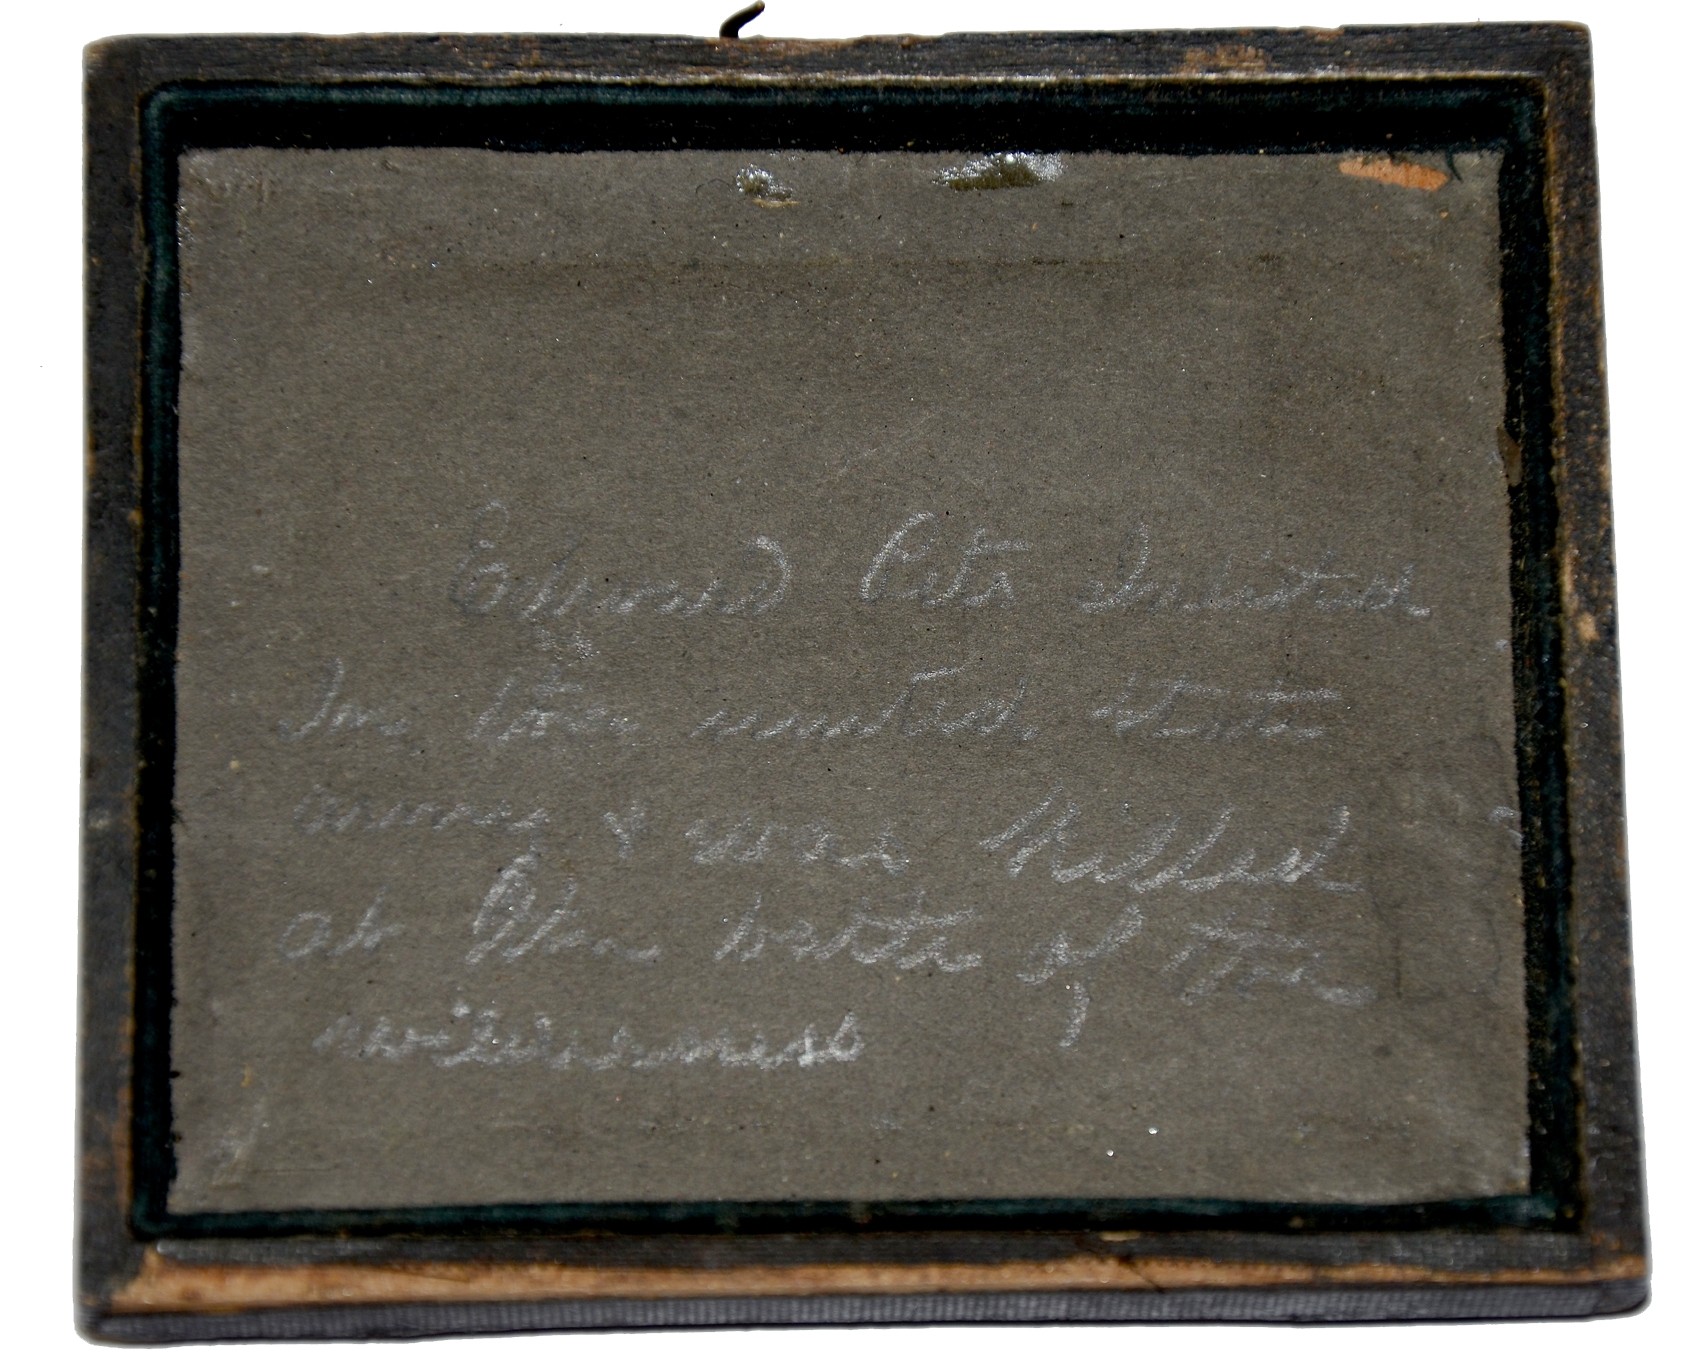 Edward Pets Inlisted
In the united State
army & was Killed
at the battle of the
wilderness